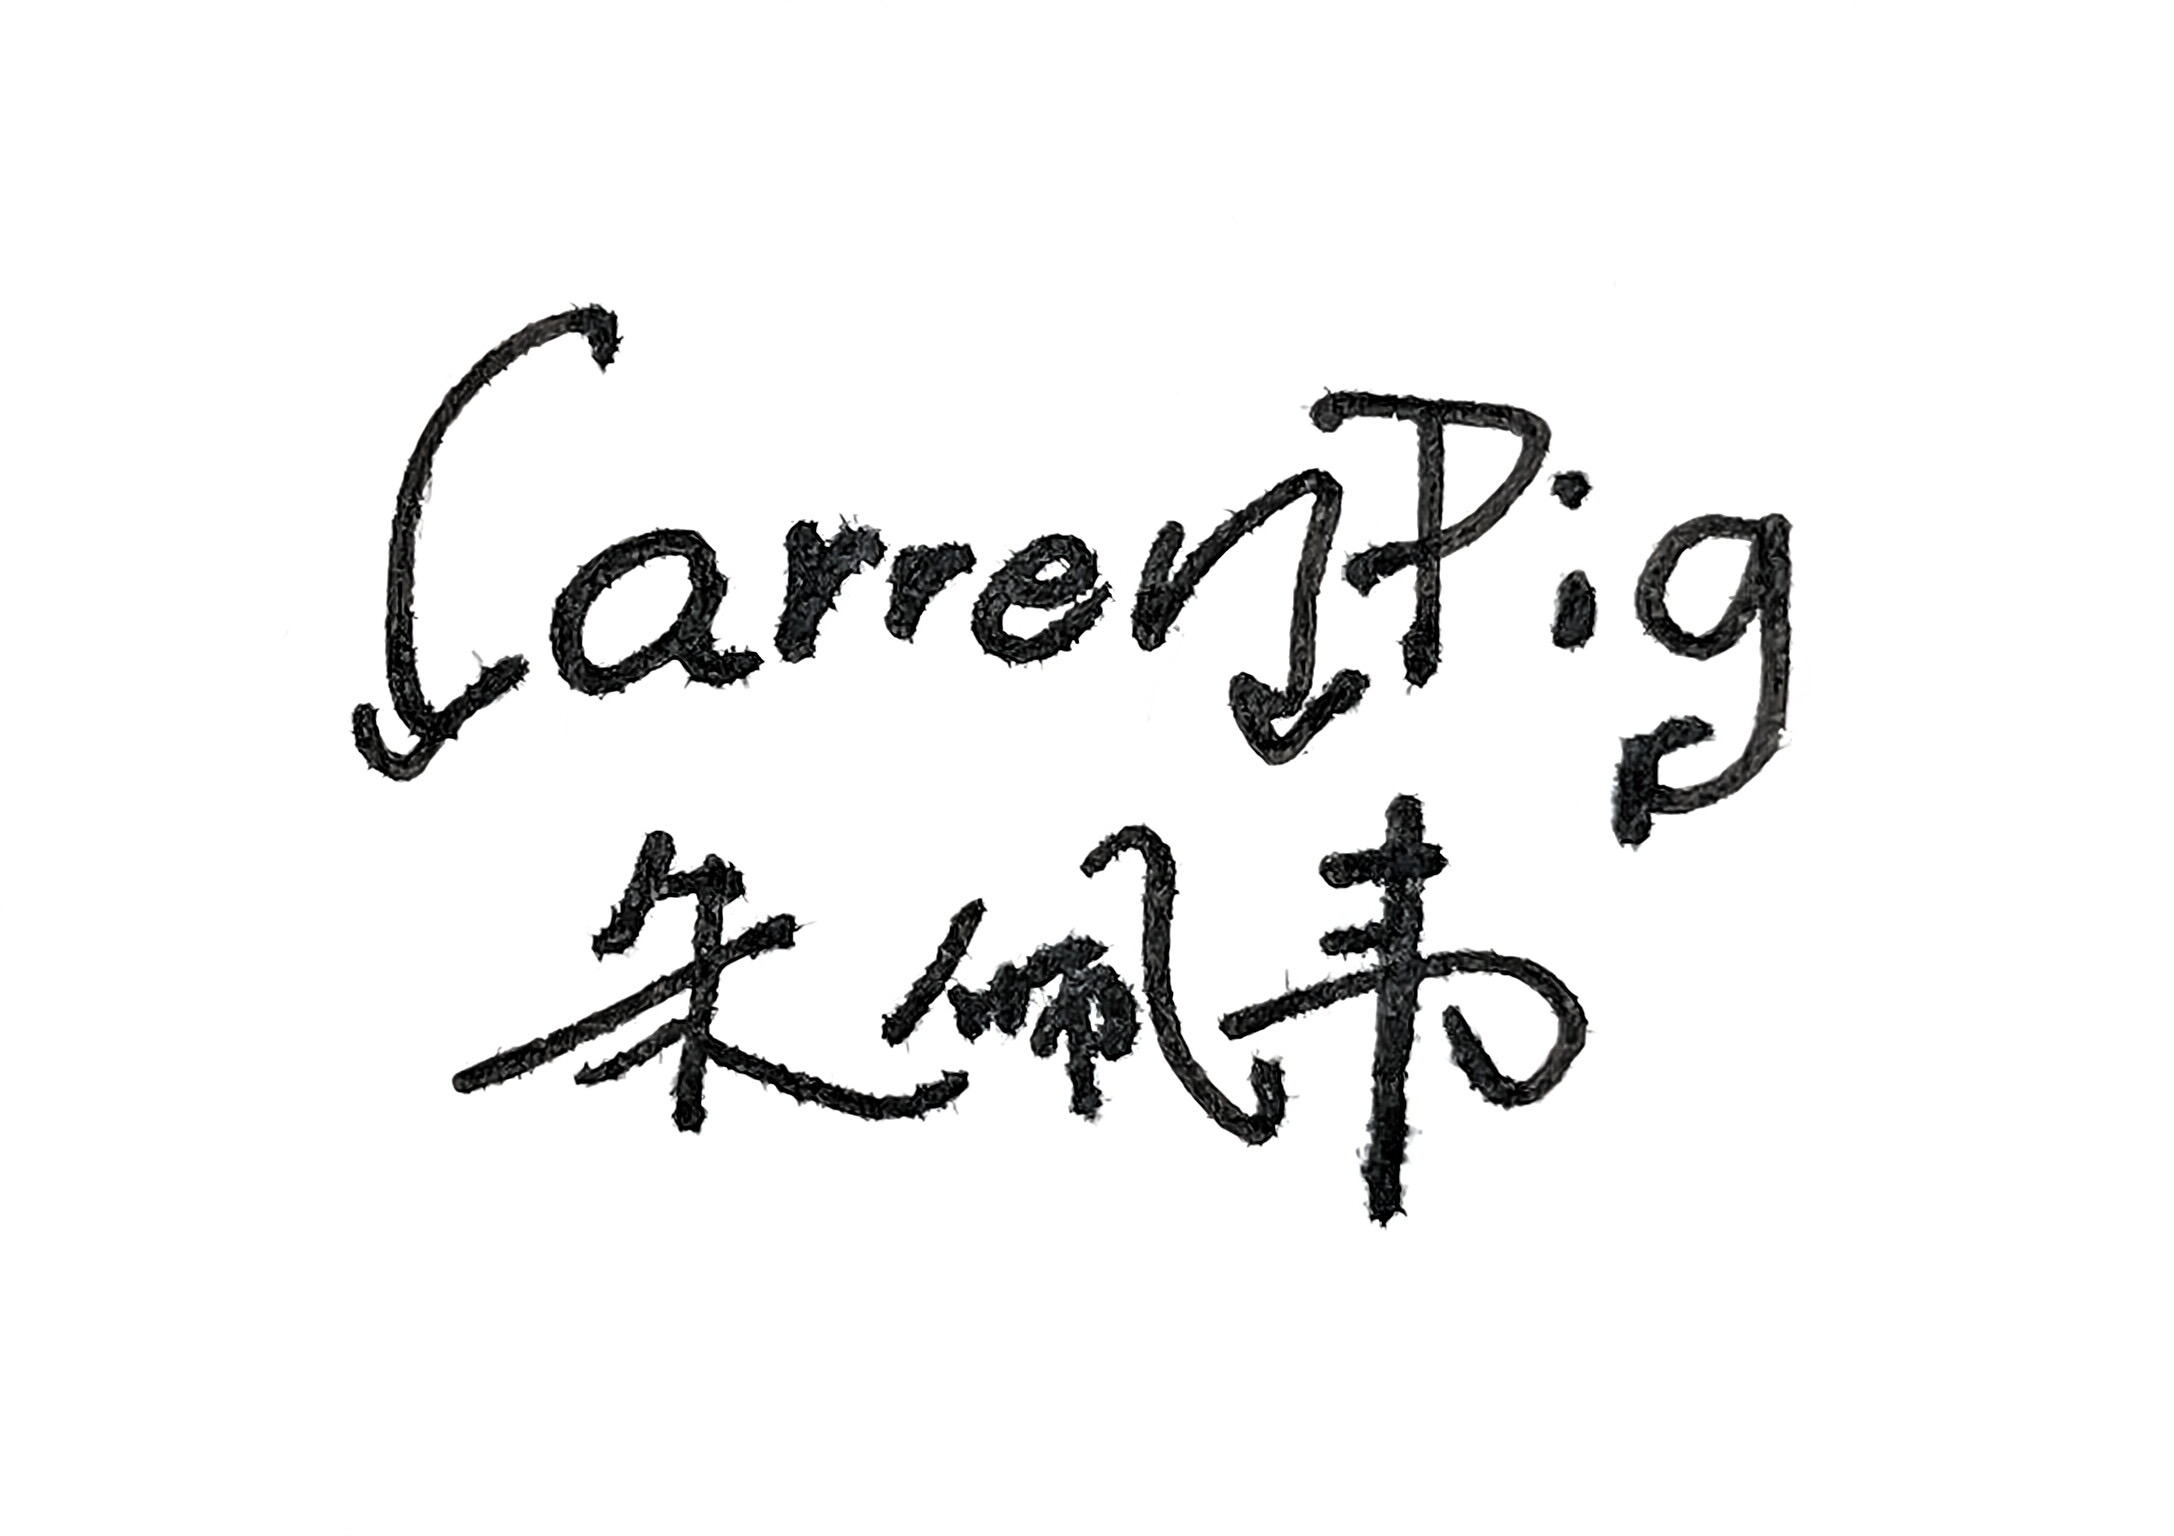 Carren Pig
朱佩韦